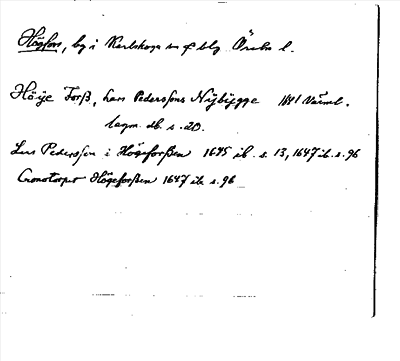 Högfors, by i Karlskoga sn o. blg Örebro l.
Höije Forß, Lars Pederssons Nijbijgge 1641 Värml.
lagm. db. s. 20.
Lars Pedersson i Högeforßen 1645 ib. s. 13, 1647 ib. s. 96
Cronotorper Högeforßen 1647 ib. s. 96